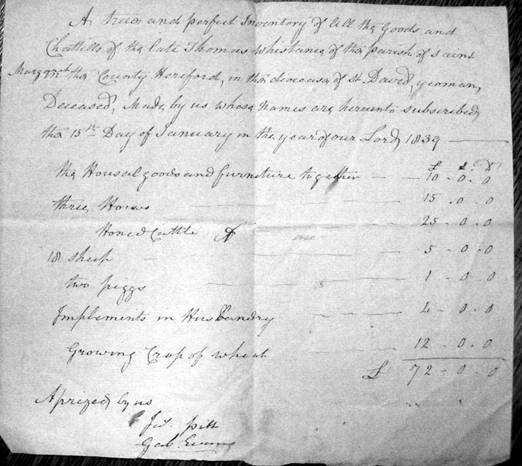 A true and perfect Inventory of all the Goods and
Chattells of the late Thomas Whestance of the Parish of Saint
Margretts the County Hereford, in the diocess of St. David, yeoman,
Deceased, Made by us whose names are hereunto subscribed
the 15th Day of January in the year of our Lord 1839
£ s. D
the Housel goods and furniture together 10-0-0
three Horses 15-0-0
Horned Cattle 25-0-0
18 sheep 5-0-0
two piggs 1-0-0
Implements in Husbandry 4-0-0
Growing Crop of wheat 12-0-0
£ 72-0-0
Aprized by us
Pitt
Evans